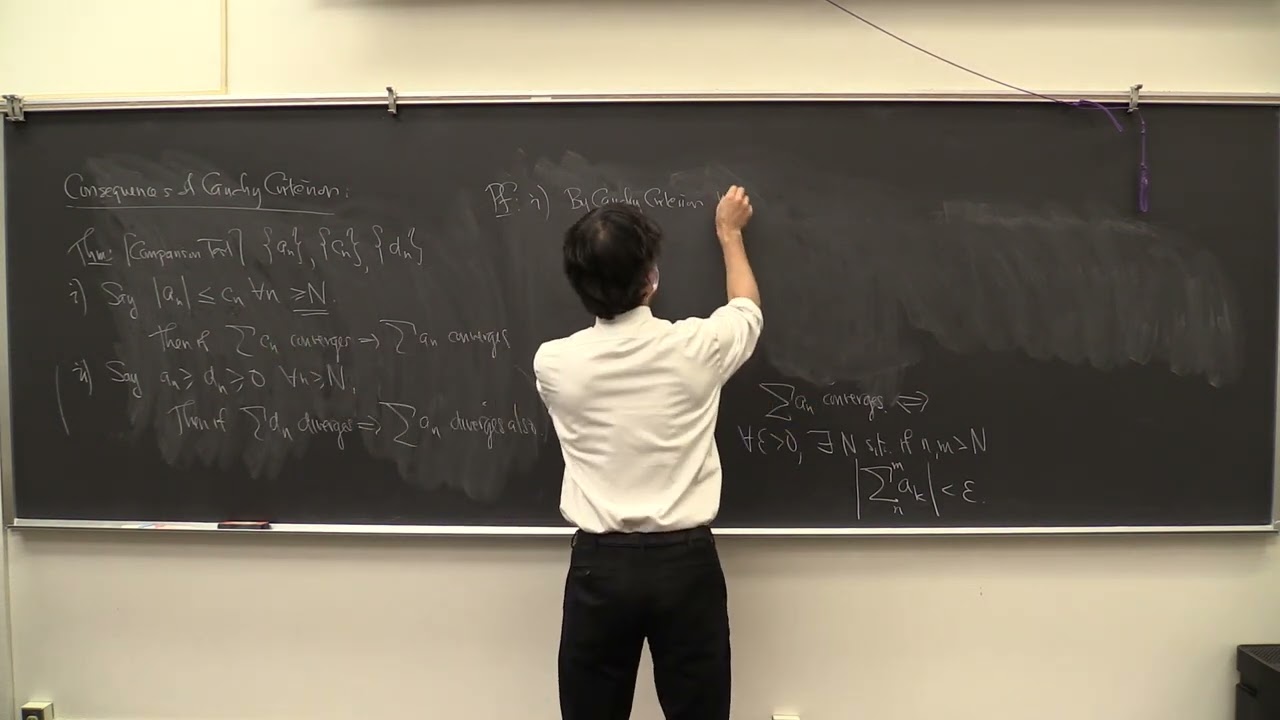 Consequences of Cauchy Criterion:
Thm: [Comparison Test] {aₙ}, {cₙ}, {dₙ}
i) Say |aₙ| ≤ cₙ ∀n ≥ N.
Then if ∑ cₙ converges ⇒ ∑ aₙ converges
ii) Say aₙ ≥ dₙ ≥ 0 ∀n ≥ N,
Then if ∑ dₙ diverges ⇒ ∑ aₙ diverges also
Pf: i) By Cauchy Criterion
∑ aₙ converges ⇔
∀ε>0, ∃ N s.t. if n,m ≥ N
|∑ₙᵐ aₖ| < ε.